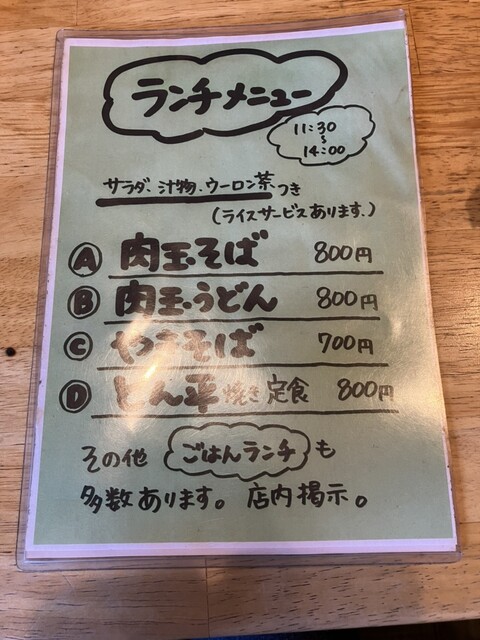 ランチメニュー
11:30
～
14:00
サラダ、汁物、ウーロン茶つき
(ライスサービスあります。)
Ⓐ 肉玉そば 800円
Ⓑ 肉玉うどん 800円
Ⓒ やきそば 700円
Ⓓ とん平焼き定食 800円
その他 ごはんランチ も
多数あります。店内掲示。